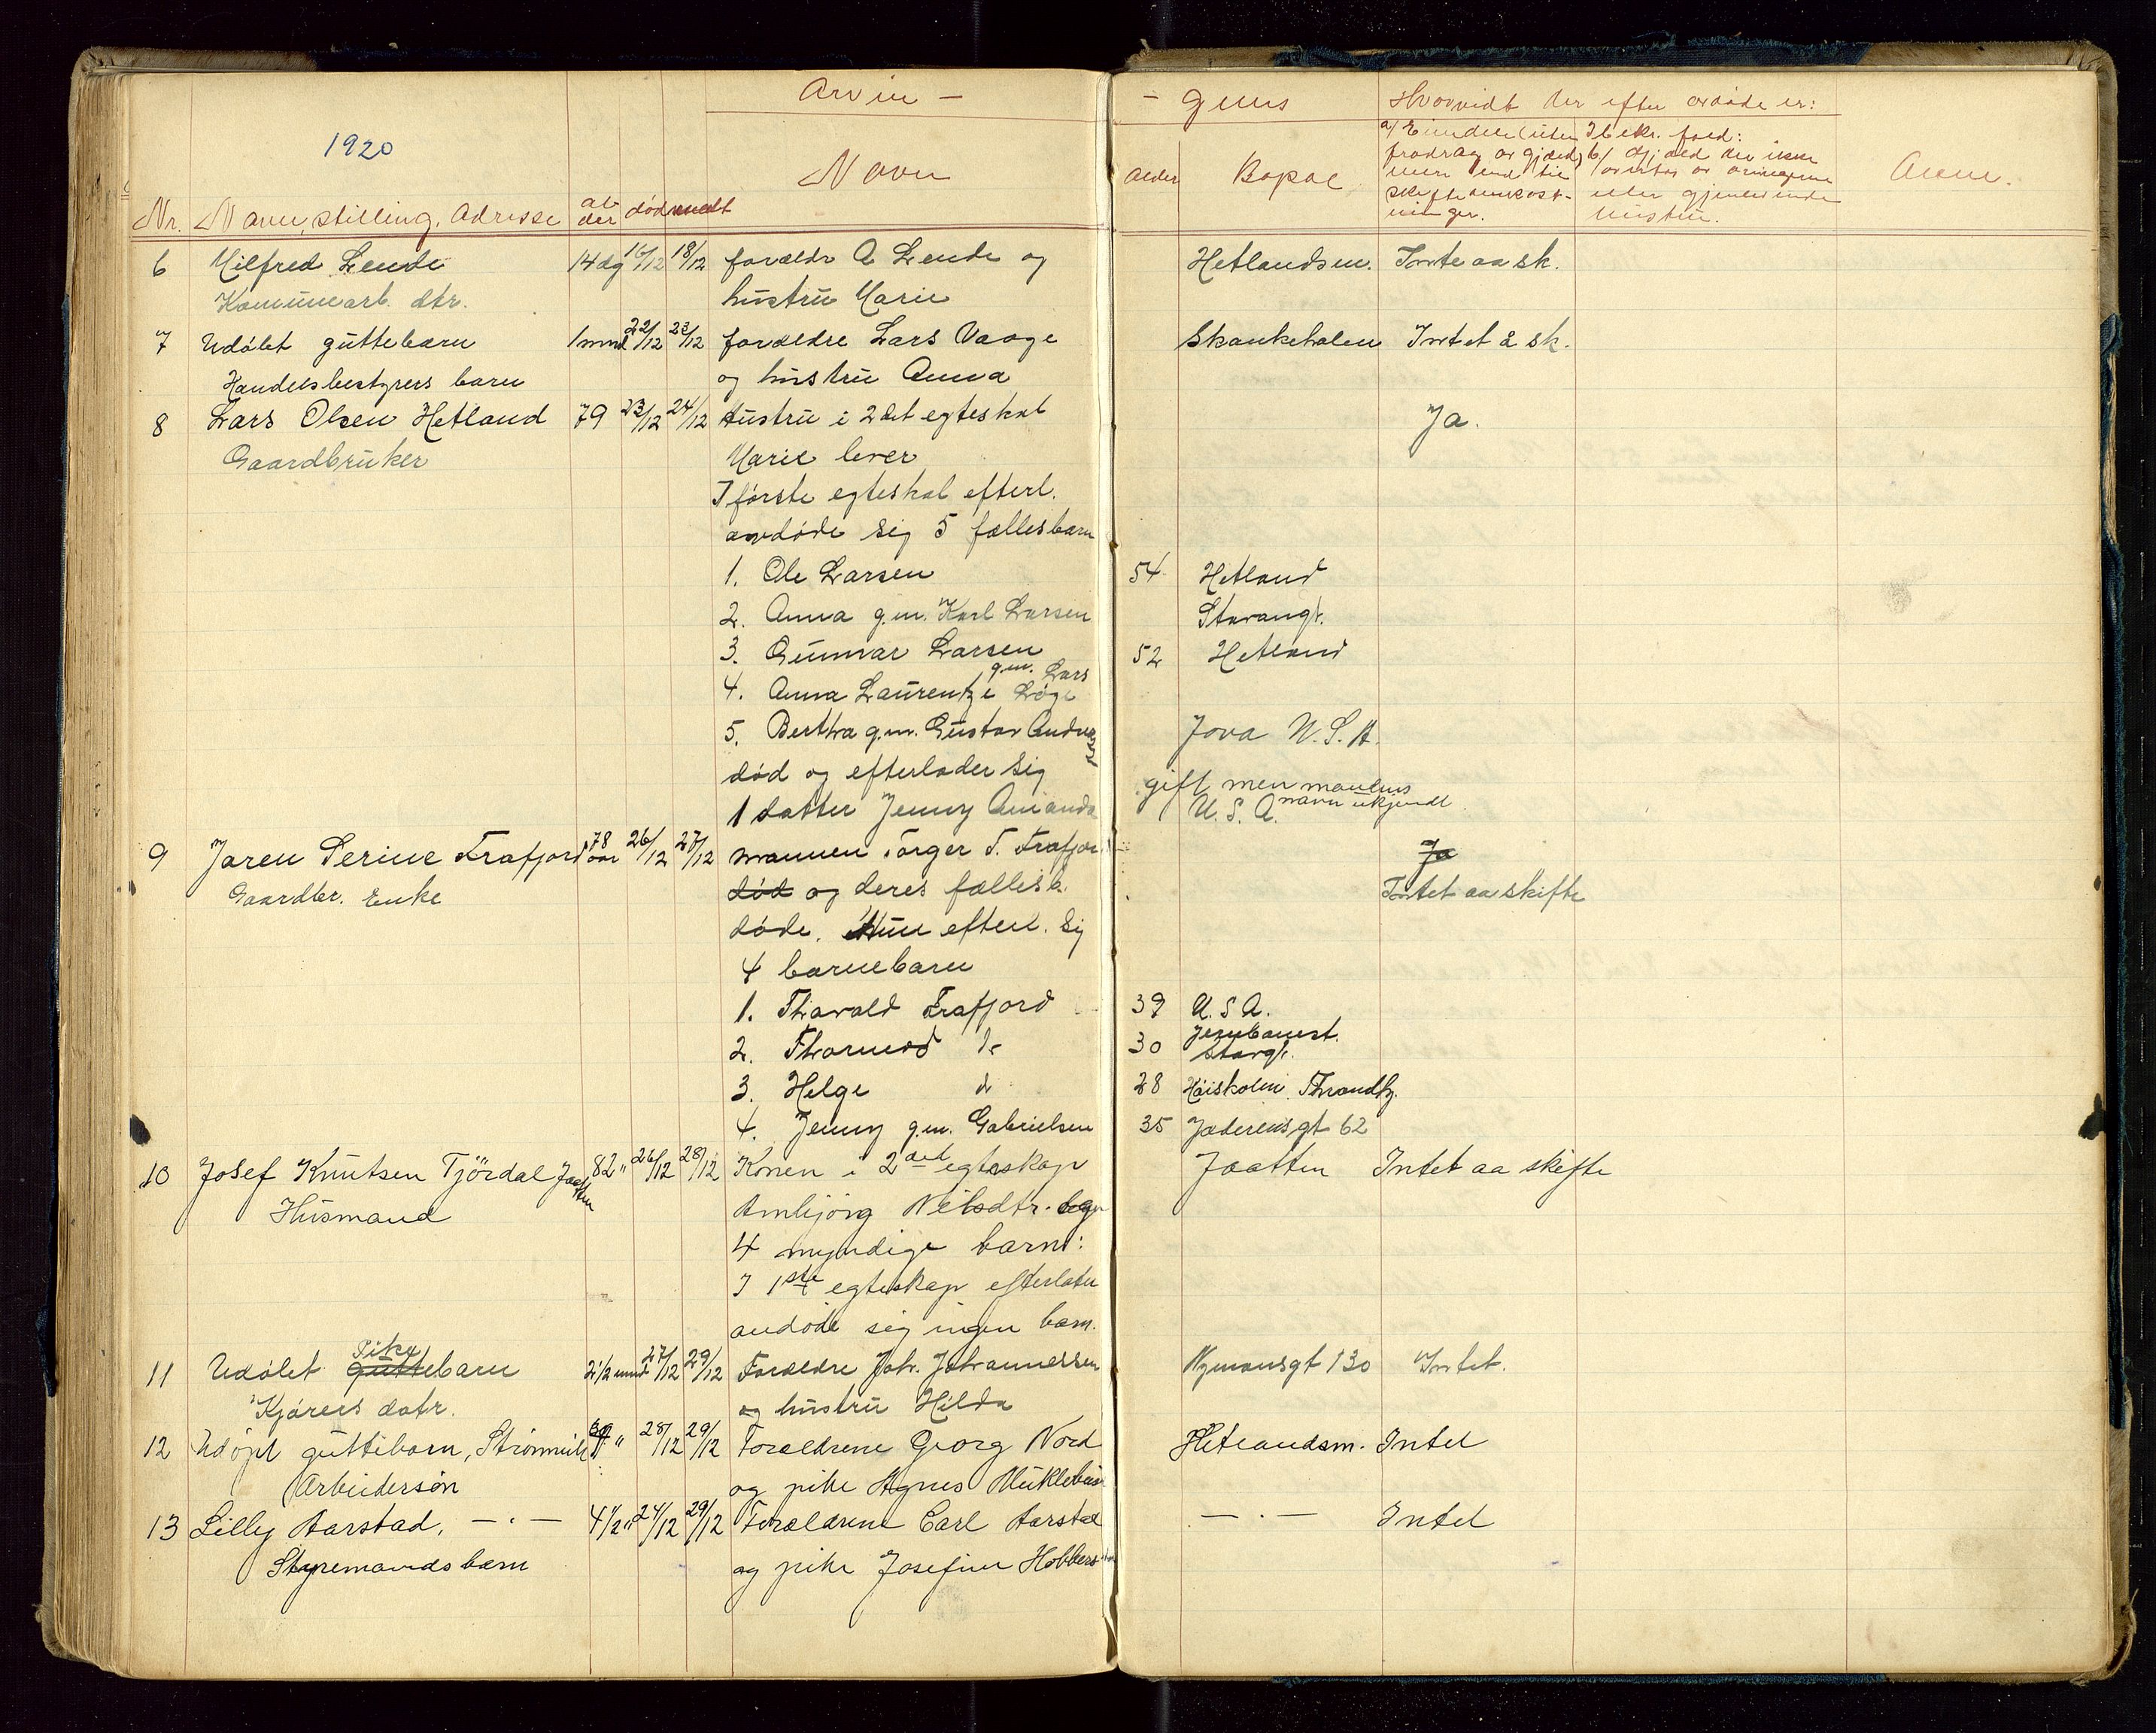 Arvin –
– gens
Hvorvidt der efter avdøde er:
1920
Navn
Alder
Bopæl
a/ Eiendele (uten
fradrag av gjæld)
mere end til
skifteomkost-
ninger.
I bekr. fald:
b/ Gjæld der ikke
overtas av arvingerne
eller gjenlevende
hustru.
Anm.
Nr. Navn, stilling, Adresse al-der død meldt
6 Milfred Lende 14 dg 16/12 18/12 forældr A Lende og Hetlandsm. Intet aa sk.
Kommunearb. dtr. hustru Marie
7 Udøbt guttebarn 1 mnd 22/12 23/12 forældre Lars Vaage Skankeholen Intet å sk.
Handelsbestyrers barn og hustru Anna
8 Lars Olsen Hetland 79 23/12 24/12 Hustru i 2det egteskab Ja.
Gaardbruker Marie lever
I første egteskab efterl.
avdøde sig 5 fællesbarn
1. Ole Larsen 54 Hetland
2. Anna g.m. Karl Larsen Stavangr.
3. Gunnar Larsen 52 Hetland
4. Anna Laurentze g.m. Lars Løge
5. Bertha g.m. Gustav Andreas Jova U.S.A.
død og efterlader sig gift men mandens
1 datter Jenny Amanda U.S.A. navn ukjendt.
9 Jaren Serine Frafjord 78 aar 26/12 27/12 mannen Torger T. Frafjor Ja
Gaardbr. Enke død og deres fællesb. Intet aa skifte
døde. Hun efterl. sig
4 barnebarn
1. Thorvald Frafjord 39 U.S.A.
2. Thormod do 30 Jernbanest. Stavgr.
3. Helge do 28 Høiskolen Throndhj.
4. Jenny g.m. Gabrielsen 35 Jæderensgt 62
10 Josef Knutsen Tjördal Jaatten 82 " 26/12 28/12 Konen i 2det egteskap Jaatten Intet aa skifte
Husmand Arnbjörg Nilsdtr. og
4 myndige barn:
I 1ste egteskap efterlater
avdøde sig ingen barn.
11 Udøbt Pike guttebarn 2 1/2 mnd 27/12 29/12 Forældre Joh. Johannessen Nymansgt 130 Intet.
Kjørers datr. og hustru Hilda
12 Udöpt guttebarn, Strømvik " 28/12 29/12 Forældrene Georg Nord Hetlandsm. Intet
Arbeidersøn og pike Agnes Mükleb
13 Lilly Aarstad, – · – 4 1/2 " 24/12 29/12 Forældrene Carl Aarstad – · – Intet
Styremands barn og pike Josefine Hobbers